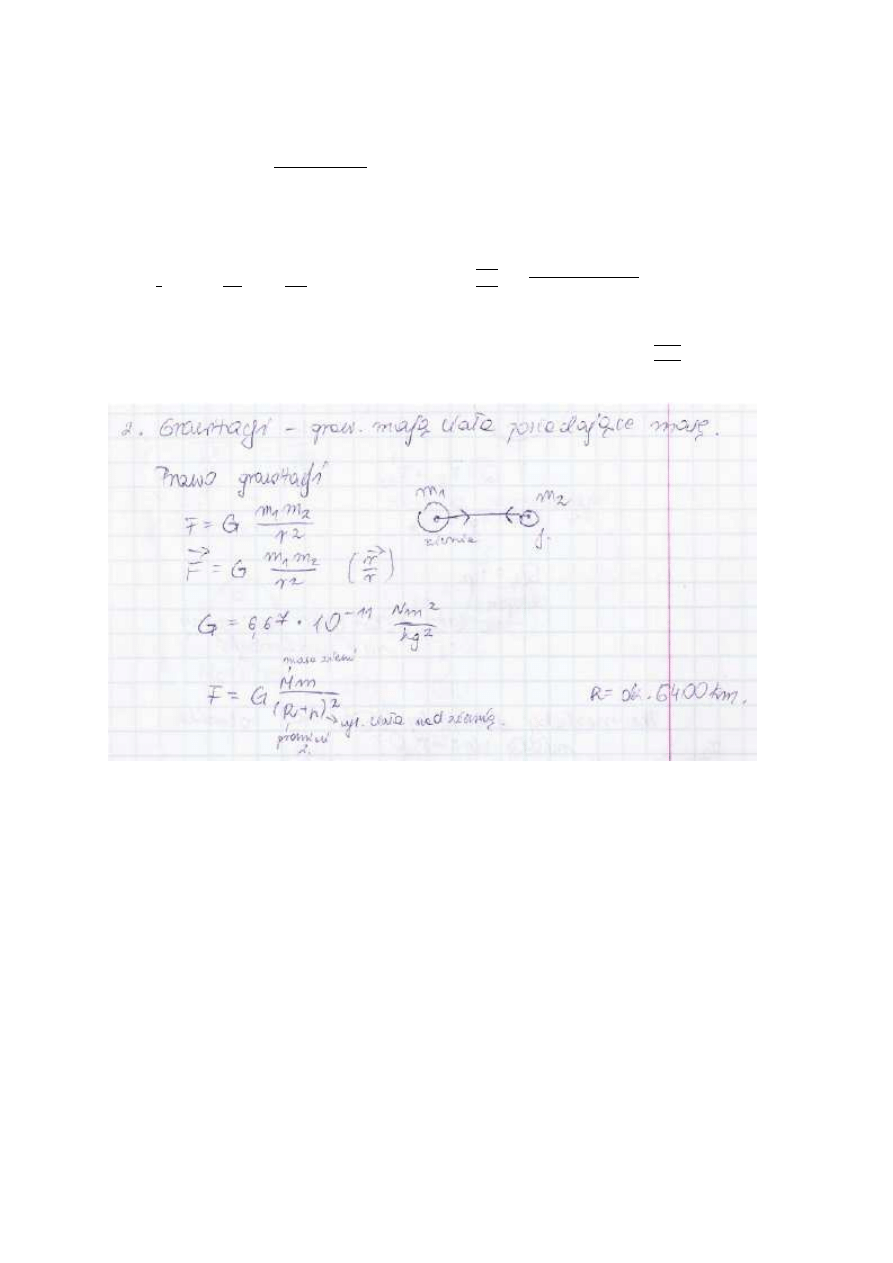 2. Grawitacji - graw. mają ciała posiadające masę.
Prawo grawitacji
m1 m2
F = G m1 m2 / r2
ziemia j.
F→ = G m1 m2 / r2 (r→ / r)
G = 6,67 · 10^-11 Nm^2 / kg^2
masa ziemi
F = G Mm / (R+h)^2 R = ok. 6400 km.
→ wys. ciała nad ziemią.
promień
z.